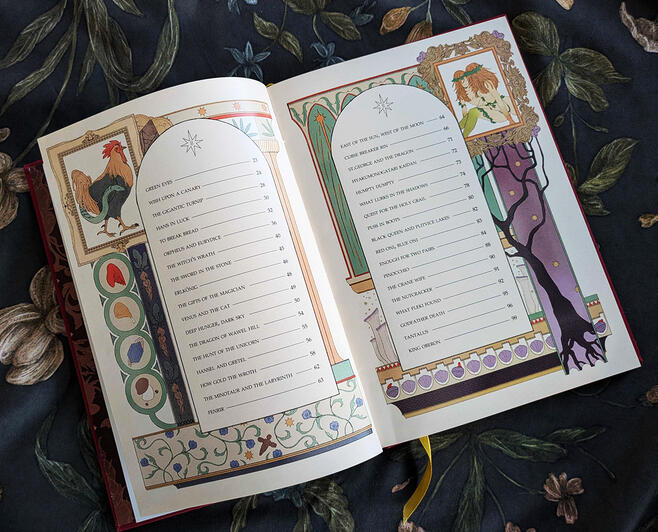 GREEN EYES 23
WISH UPON A CANARY 24
THE GIGANTIC TURNIP 26
HANS IN LUCK 30
TO BREAK BREAD 32
ORPHEUS AND EURYDICE 36
THE WITCH'S WRATH 40
THE SWORD IN THE STONE 45
ERLKÖNIG 46
THE GIFTS OF THE MAGICIAN 48
VENUS AND THE CAT 49
DEEP HUNGER, DARK SKY 50
THE DRAGON OF WAWEL HILL 54
THE HUNT OF THE UNICORN 55
HANSEL AND GRETEL 56
HOW GOLD THE WROTH 58
THE MINOTAUR AND THE LABYRINTH 62
FENRIR 63
EAST OF THE SUN, WEST OF THE MOON 64
CURSE BREAKER BIN 66
ST.GEORGE AND THE DRAGON 72
HYAKUMONOGATARI KAIDAN 73
HUMPTY DUMPTY
WHAT LURKS IN THE SHADOWS
QUEST FOR THE HOLY GRAIL 78
PUSS IN BOOTS 80
BLACK QUEEN AND PLITVICE LAKES 82
RED ON, BLUE ON! 83
ENOUGH FOR TWO PAIRS
PINOCCHIO 88
THE CRANE WIFE 90
THE NUTCRACKER
WHAT FLEKI FOUND
GODFATHER DEATH
TANTALUS
KING OBERON 99